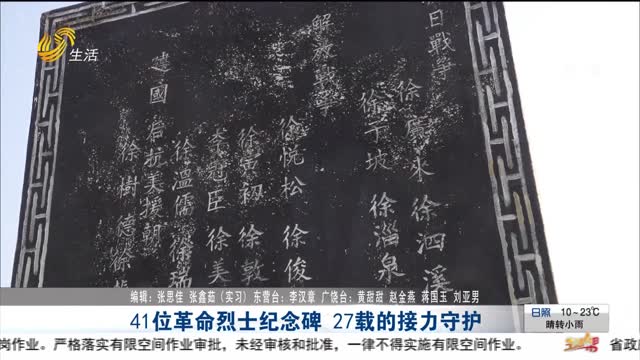 生活
日戰爭
徐廣來 徐泗溪
坡 徐淄泉
解放戰爭
徐悦松 徐俊
徐寅初 徐敦
李冠臣 徐美
徐溫儒 徐瑞
建國后抗美援朝
徐樹德 徐
编辑：张思佳 张鑫茹（实习）东营台：李汉章 广饶台：黄甜甜 赵金燕 蒋国玉 刘亚男
41位革命烈士纪念碑 27载的接力守护
日照 10~23℃
晴转小雨
岗作业。严格落实有限空间作业审批，未经审核和批准，一律不得实施有限空间作业。 省政